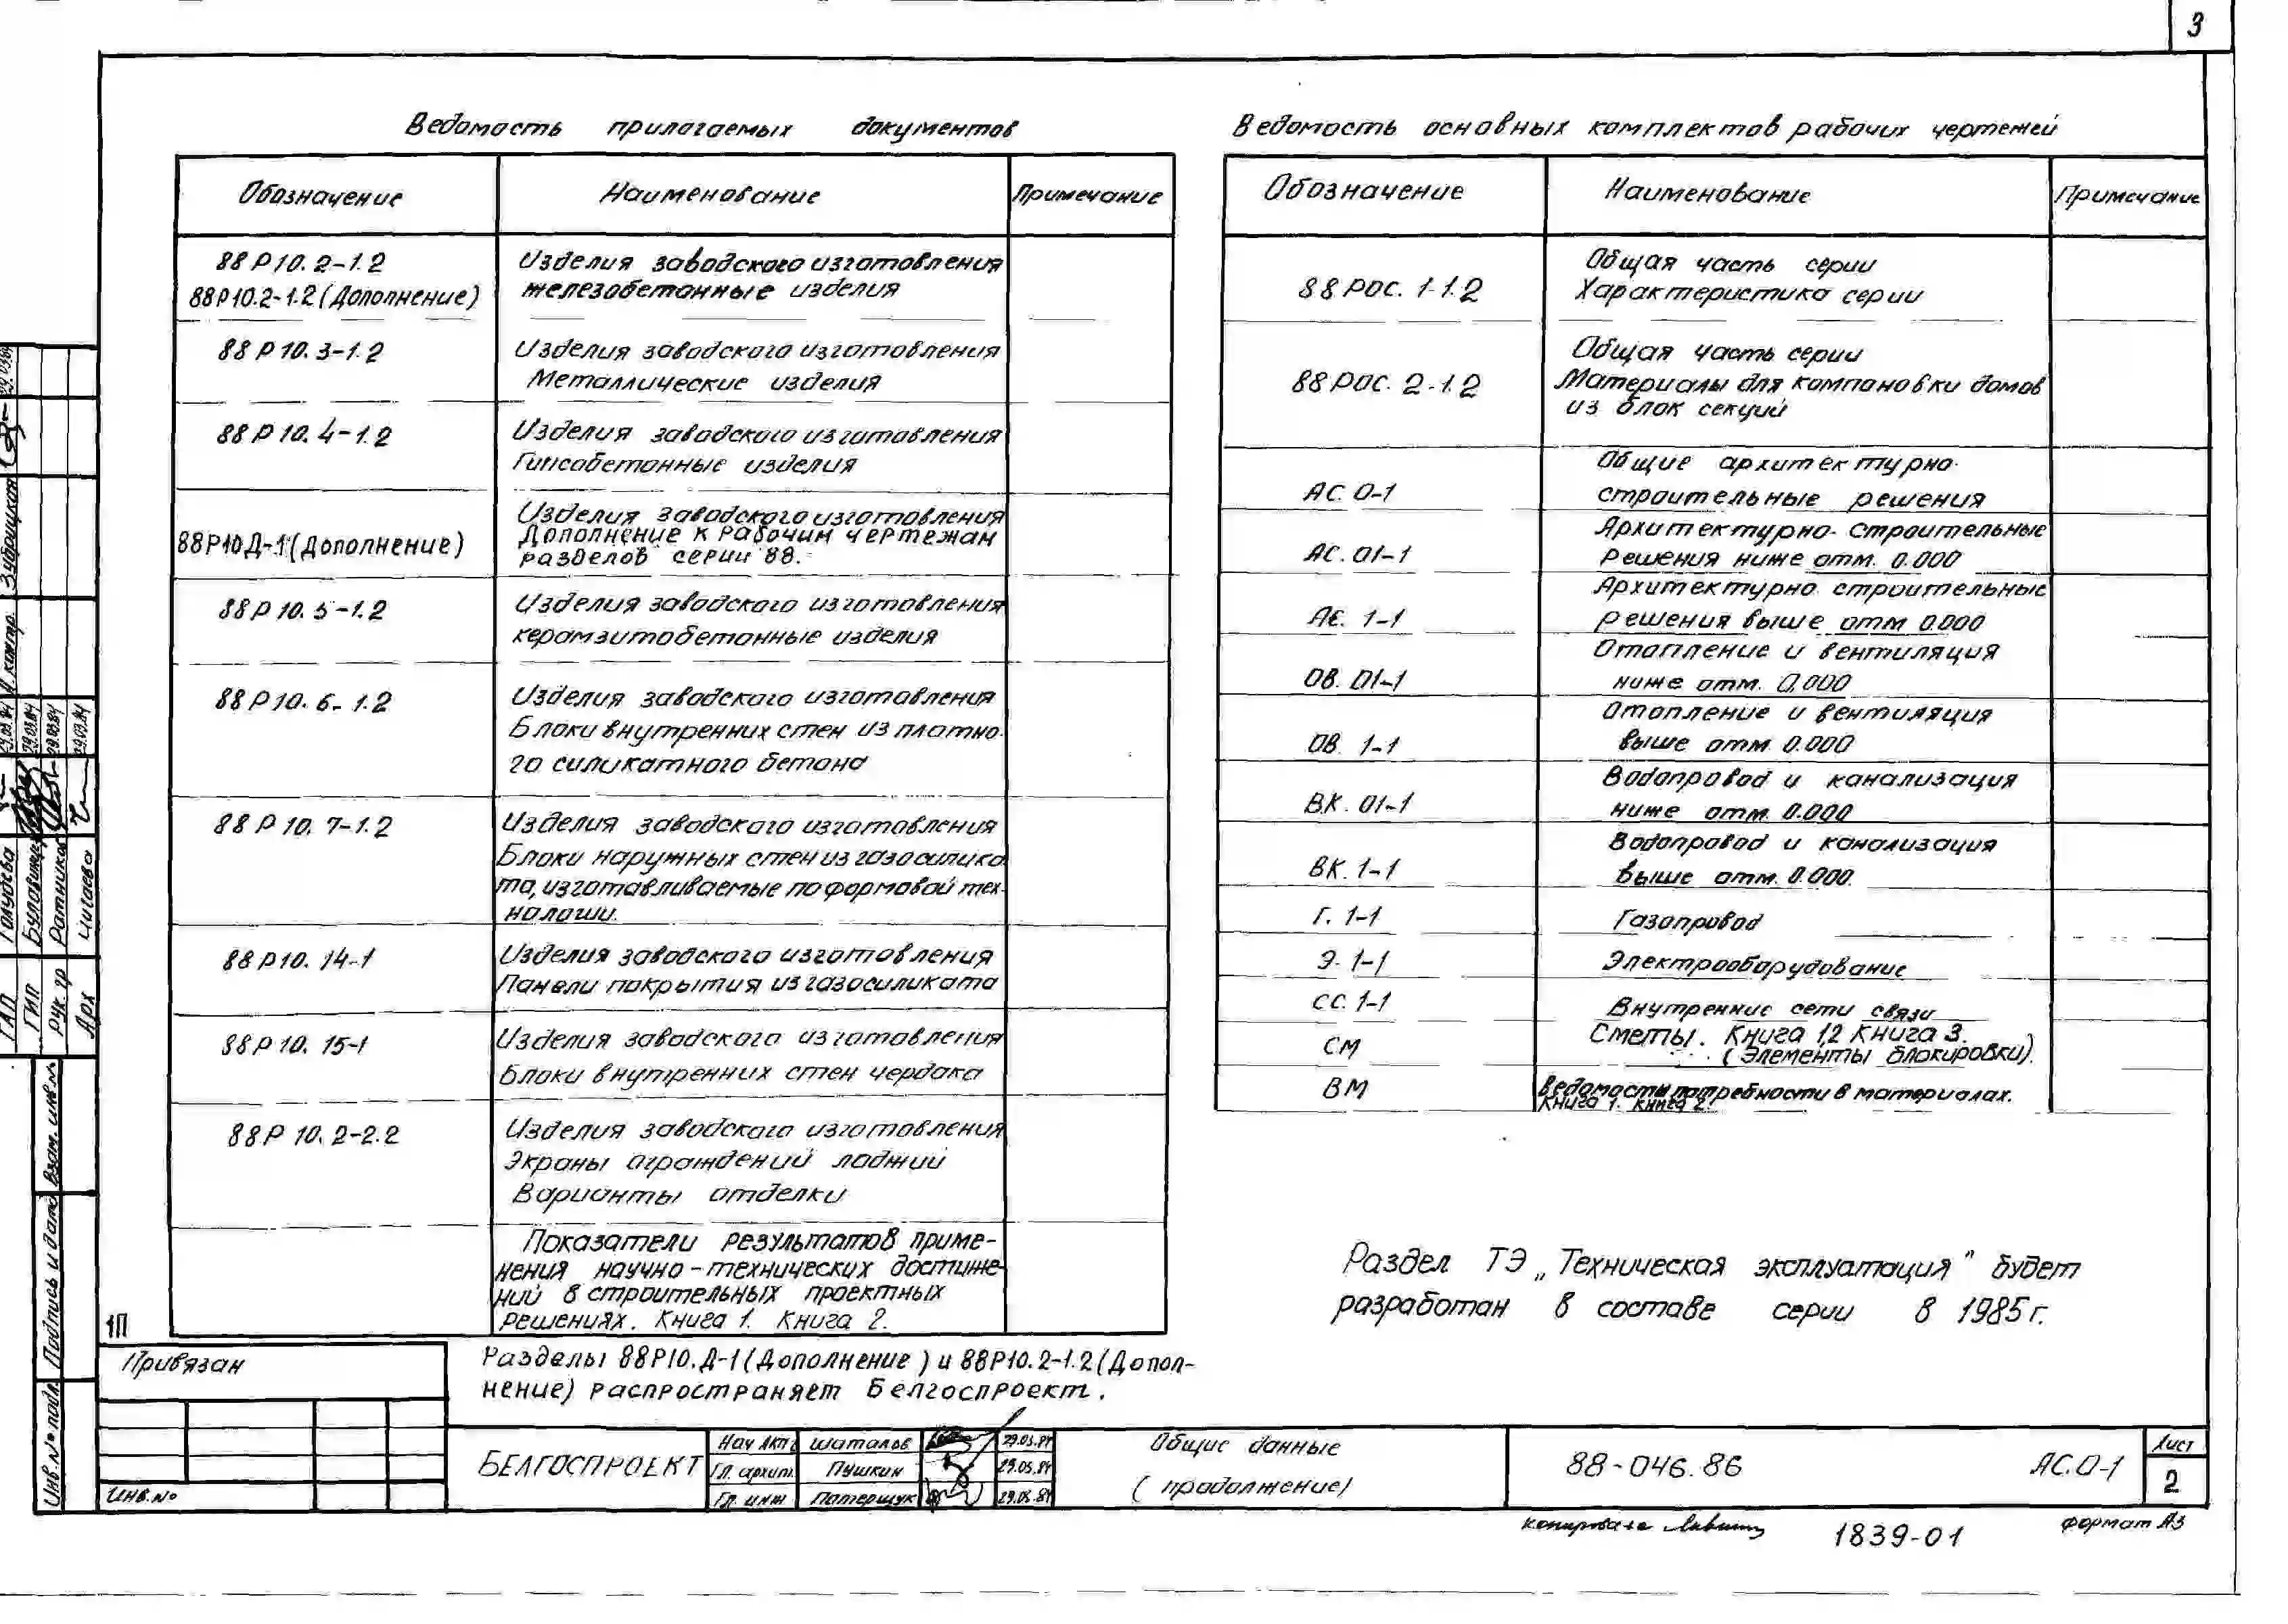 3
Ведомость прилагаемых документов
Обозначение Наименование Примечание
88Р10.2-1.2 Изделия заводского изготовления
88Р10.2-1.2 (Дополнение) железобетонные изделия
88Р10.3-1.2 Изделия заводского изготовления
Металлические изделия
88Р10.4-1.2 Изделия заводского изготовления
Гипсобетонные изделия
Изделия заводского изготовления
88Р10Д-1 (Дополнение) Дополнение к рабочим чертежам
разделов серии 88.
88Р10.5-1.2 Изделия заводского изготовления
керамзитобетонные изделия
88Р10.6-1.2 Изделия заводского изготовления
Блоки внутренних стен из плотно-
го силикатного бетона
88Р10.7-1.2 Изделия заводского изготовления
Блоки наружных стен из газосилика
та, изготавливаемые по формовой тех-
нологии.
88Р10.14-1 Изделия заводского изготовления
Панели покрытия из газосиликата
88Р10.15-1 Изделия заводского изготовления
Блоки внутренних стен чердака
88Р10.2-2.2 Изделия заводского изготовления
Экраны ограждений лоджий
Варианты отделки
Показатели результатов приме-
нения научно-технических достиже-
ний в строительных проектных
решениях. Книга 1. Книга 2.
Разделы 88Р10.Д-1 (Дополнение) и 88Р10.2-1.2 (Допол-
нение) распространяет Белгоспроект.
Ведомость основных комплектов рабочих чертежей
Обозначение Наименование Примечание
Общая часть серии
88РОС. 1-1.2 Характеристика серии
Общая часть серии
88РОС. 2-1.2 Материалы для компановки домов
из блок секций
Общие архитектурно-
АС. 0-1 строительные решения
Архитектурно-строительные
АС. 01-1 решения ниже отм. 0.000
Архитектурно строительные
АС. 1-1 решения выше отм 0.000
Отопление и вентиляция
ОВ. 01-1 ниже отм. 0,000
Отопление и вентиляция
ОВ. 1-1 выше отм. 0.000
Водопровод и канализация
ВК. 01-1 ниже отм. 0.000
Водопровод и канализация
ВК. 1-1 выше отм. 0.000.
Г. 1-1 Газопровод
Э. 1-1 Электрооборудование
СС. 1-1 Внутренние сети связи
Сметы. Книга 1,2 Книга 3.
СМ (Элементы блокировки).
ВМ Ведомости потребности в материалах.
Книга 1. Книга 2.
Раздел ТЭ „Техническая эксплуатация" будет
разработан в составе серии в 1985 г.
1П
Привязан
Инв.№
БЕЛГОСПРОЕКТ
Нач АКП Шаталов 29.03.84
Гл. архит. Пушкин 29.03.84
Гл. инж Патерщук 29.03.84
Общие данные
(продолжение)
88-046.86 АС.0-1
Лист
2
копировала
1839-01
формат А3
Н.контр. Зубрицкая
ГАП Голубева 29.03.84
ГИП 29.03.84
Рук. гр Ратников 29.03.84
Арх Чигаева 29.03.84
Взам. инв.№
Подпись и дата
Инв.№ подл.